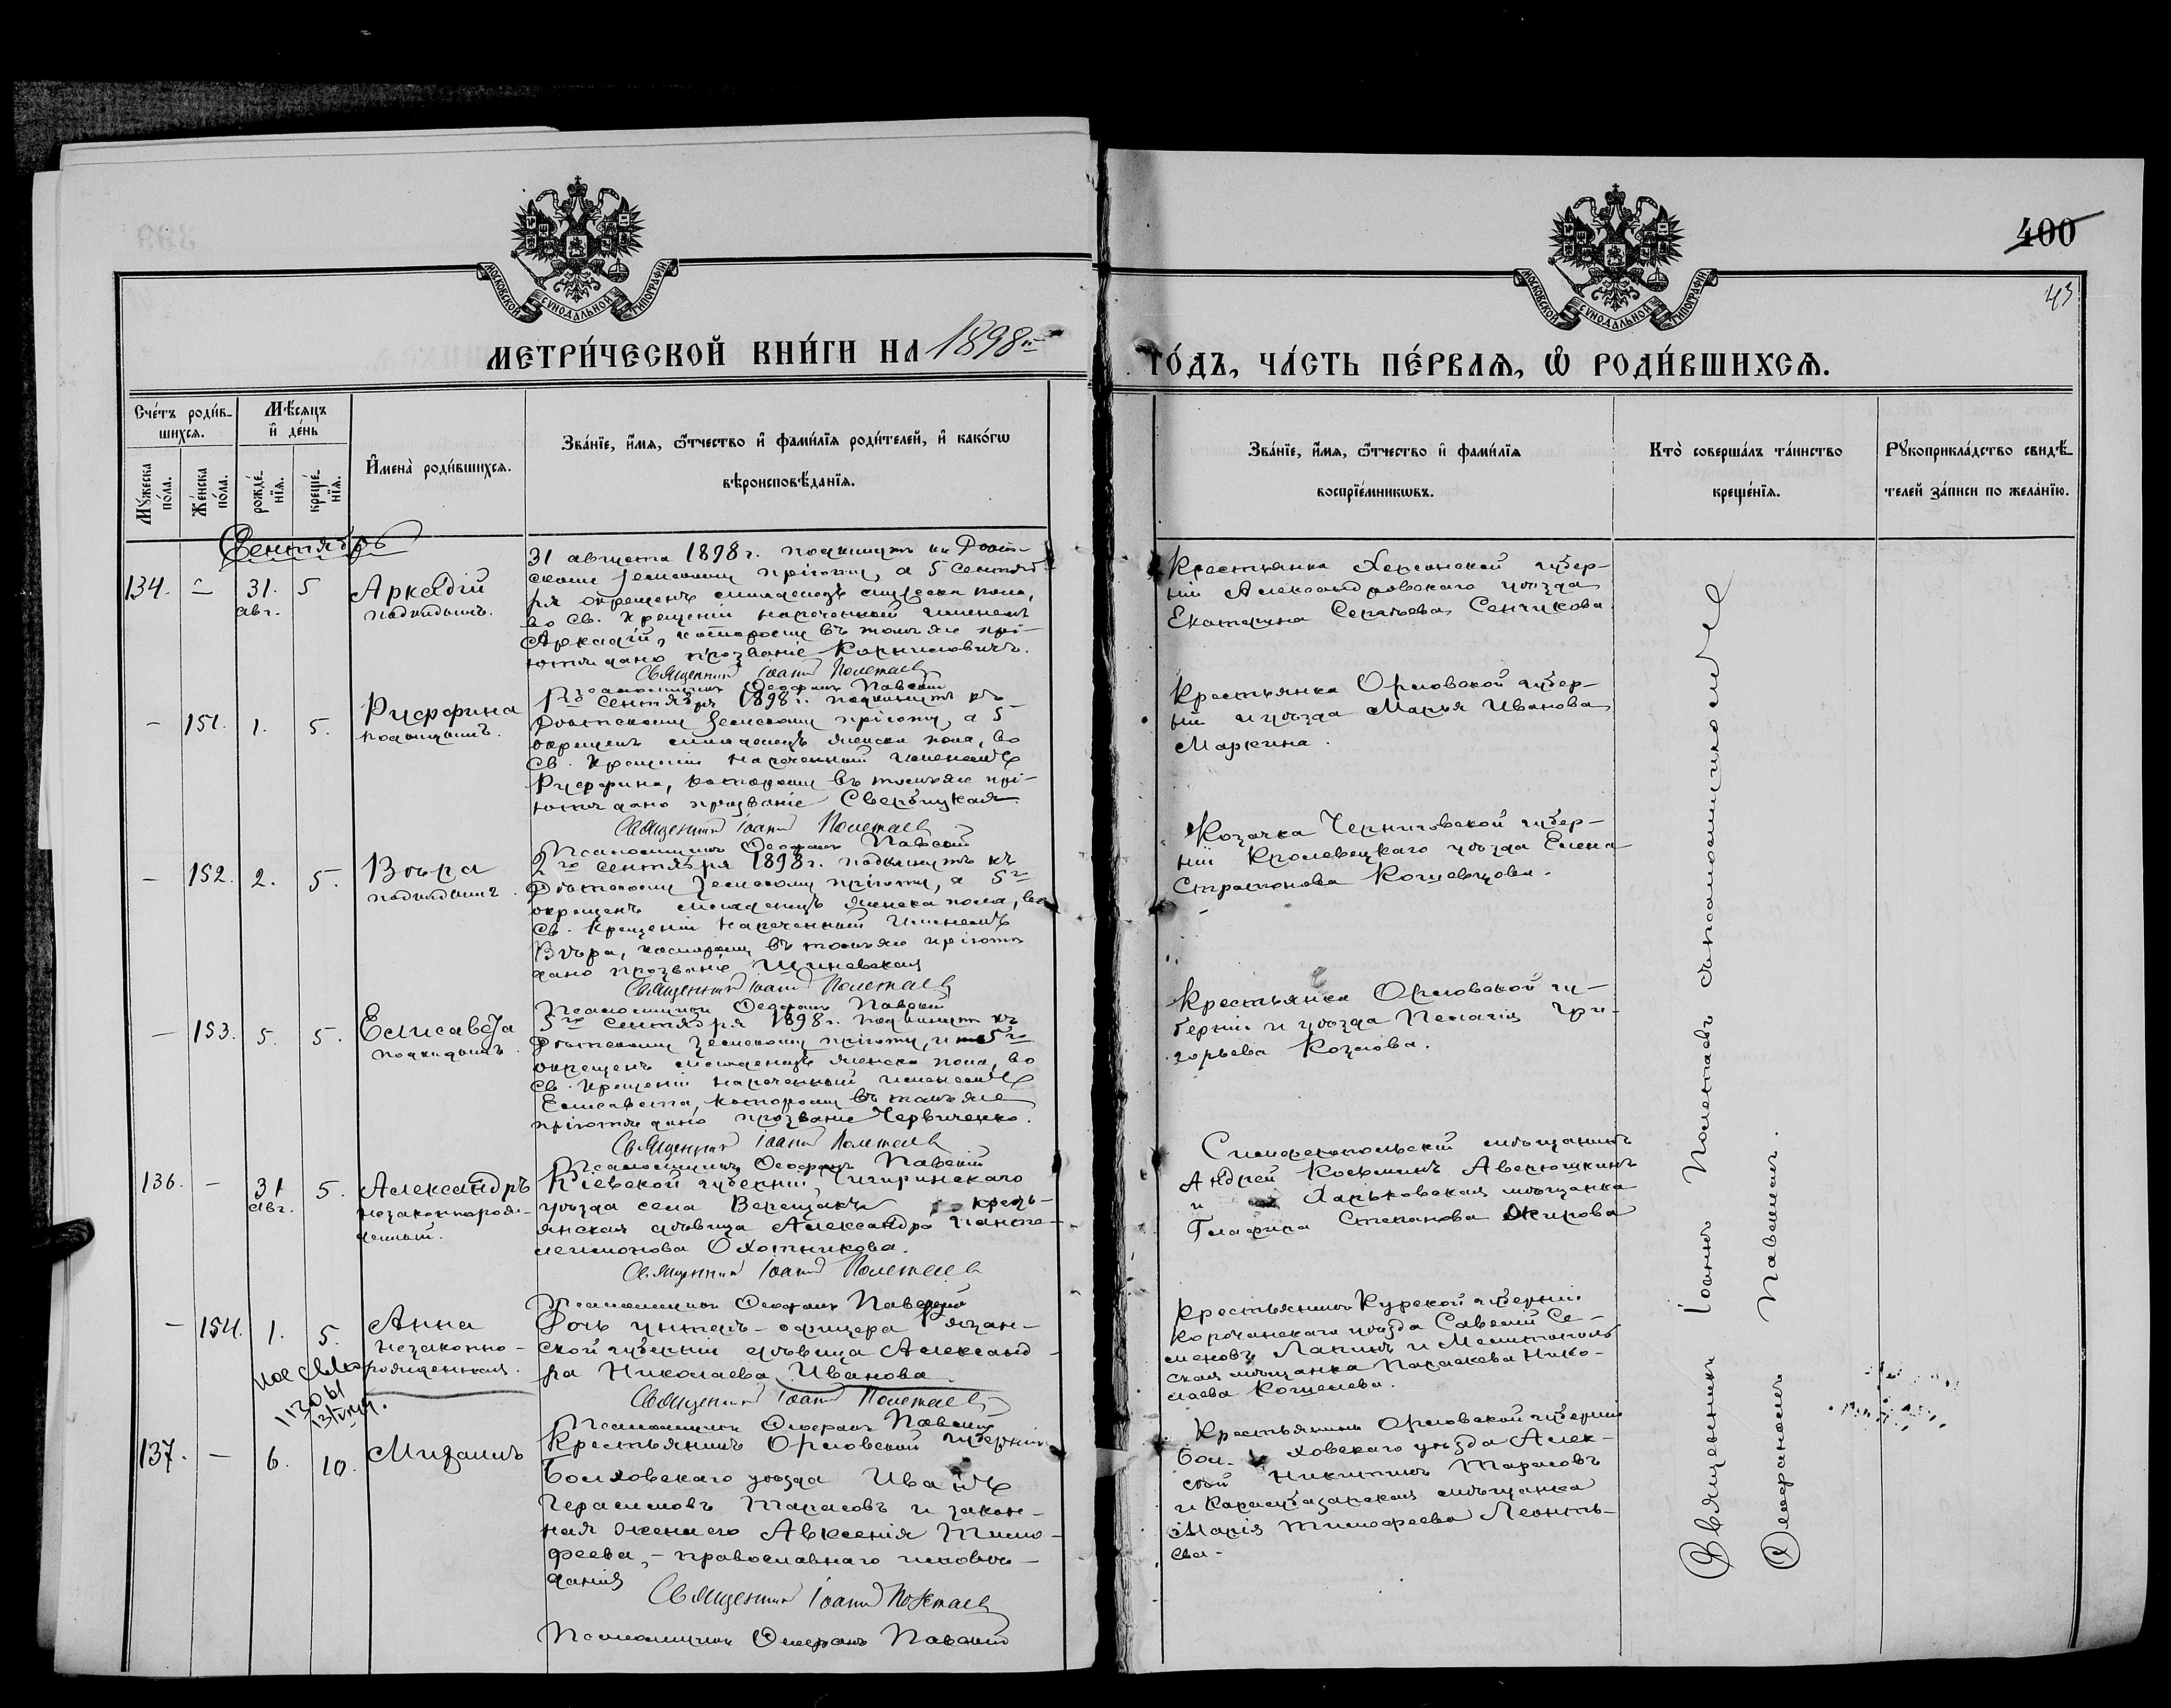 400
43
МОСКОВСКОЙ СУНОДАЛЬНОЙ ТИПОГРАФІИ
МОСКОВСКОЙ СУНОДАЛЬНОЙ ТИПОГРАФІИ
МЕТРИ́ЧЕСКОЙ КНИ́ГИ НА 1898й
ГО́ДЪ, ЧА́СТЬ ПЕ́РВАѦ, Ѽ РОДИ́ВШИХСѦ.
Сче́тъ роди́в-
шихсѧ.
Мꙋ́жеска по́ла.
Же́нска по́ла.
Мѣ́сѧцъ
и҆ де́нь
рожде́-
нїѧ.
креще́-
нїѧ.
И҆мена̀ роди́вшихсѧ.
Зва́нїе, и҆́мѧ, ѻ҆́тчество и҆ фами́лїѧ роди́телей, и҆ како́гѡ
вѣроисповѣ́данїѧ.
Зва́нїе, и҆́мѧ, ѻ҆́тчество и҆ фами́лїѧ
воспрїе́мникѡвъ.
Кто̀ соверша́лъ та́инство
креще́нїѧ.
Рꙋкоприкла́дство свидѣ́-
телей за́писи по жела́нїю.
Сентябрь
134. – 31. авг. 5 Аркадій
подкидышъ.
31 августа 1898 г. подкинутъ къ Дѣт-
скому земскому пріюту, а 5 сентяб-
ря окрещенъ младенецъ мужеска пола,
во Св. Крещеніи нареченный именемъ
Аркадій, которому въ томъ же прі-
ютѣ дано прозваніе Корниловичъ.
Священникъ Іоаннъ Полетаевъ
Псаломщикъ Ѳеофанъ Павскій
Крестьянка Херсонской губер-
ніи Александровскаго уѣзда
Екатерина Сергѣева Сенчукова.
– 151. 1. 5. Руффина
подкидышъ.
1го сентября 1898 г. подкинутъ къ
Дѣтскому земскому пріюту, а 5
окрещенъ младенецъ женска пола, во
Св. Крещеніи нареченный именемъ
Руффина, которому въ томъ же прі-
ютѣ дано прозваніе
Священникъ Іоаннъ Полетаевъ
Псаломщикъ Ѳеофанъ Павскій
Крестьянка Орловской губер-
ніи и уѣзда Марья Иванова
Маркина.
– 152. 2. 5. Вѣра
подкидышъ.
2го сентября 1898 г. подкинутъ къ
Дѣтскому земскому пріюту, а 5го
окрещенъ младенецъ женска пола, во
Св. Крещеніи нареченный именемъ
Вѣра, которому въ томъ же пріютѣ
дано прозваніе
Священникъ Іоаннъ Полетаевъ
Псаломщикъ Ѳеофанъ Павскій
Козачка Черниговской губер-
ніи Кролевецкаго уѣзда Елена
– 153. 5. 5. Елисавета
подкидышъ.
5го сентября 1898 г. подкинутъ къ
Дѣтскому земскому пріюту, и 5го
окрещенъ младенецъ женска пола, во
Св. Крещеніи нареченный именемъ
Елисавета, которому въ томъ же
пріютѣ дано прозваніе Червиченко.
Священникъ Іоаннъ Полетаевъ
Псаломщикъ Ѳеофанъ Павскій
Крестьянка Орловской гу-
берніи и уѣзда Пелагія Гри-
горьева Козлова.
136. – 31 авг. 5. Александръ
незаконнорож-
денный.
Кіевской губерніи, Чигиринскаго
уѣзда села Верещакъ кресть-
янская дѣвица Александра Панте-
леимонова Охотникова.
Священникъ Іоаннъ Полетаевъ
Псаломщикъ Ѳеофанъ Павскій
Симферопольскій мѣщанинъ
Андрей Косьминъ Аверюшкинъ
и Харьковская мѣщанка
Глафира Степанова
– 154. 1. 5. Анна
незаконно-
рожденная.
Дочь унтеръ-офицера Рязан-
ской губерніи дѣвица Александ-
ра Николаева Иванова.
Священникъ Іоаннъ Полетаевъ
Псаломщикъ Ѳеофанъ Павскій
Крестьянинъ Курской губерніи
Корочанскаго уѣзда Савелій Се-
меновъ Лапинъ и Мелитополь-
ская мѣщанка Параскева Нико-
лаева Кошелева.
137. – 6. 10. Михаилъ
Крестьянинъ Орловской губерніи
Болховскаго уѣзда Иванъ
Герасимовъ Тарасовъ и закон-
ная жена его Авксенія Тимо-
феева, – православнаго исповѣ-
данія
Священникъ Іоаннъ Полетаевъ
Псаломщикъ Ѳеофанъ Павскій
Крестьянинъ Орловской губерніи
Бол-ховскаго уѣзда Алек-
сѣй Никитинъ Тарасовъ
и Карасубазарская мѣщанка
Марія Тимофеева Леонть-
ева.
Священникъ Іоаннъ Полетаевъ съ псаломщикомъ
Ѳеофаномъ Павскимъ.